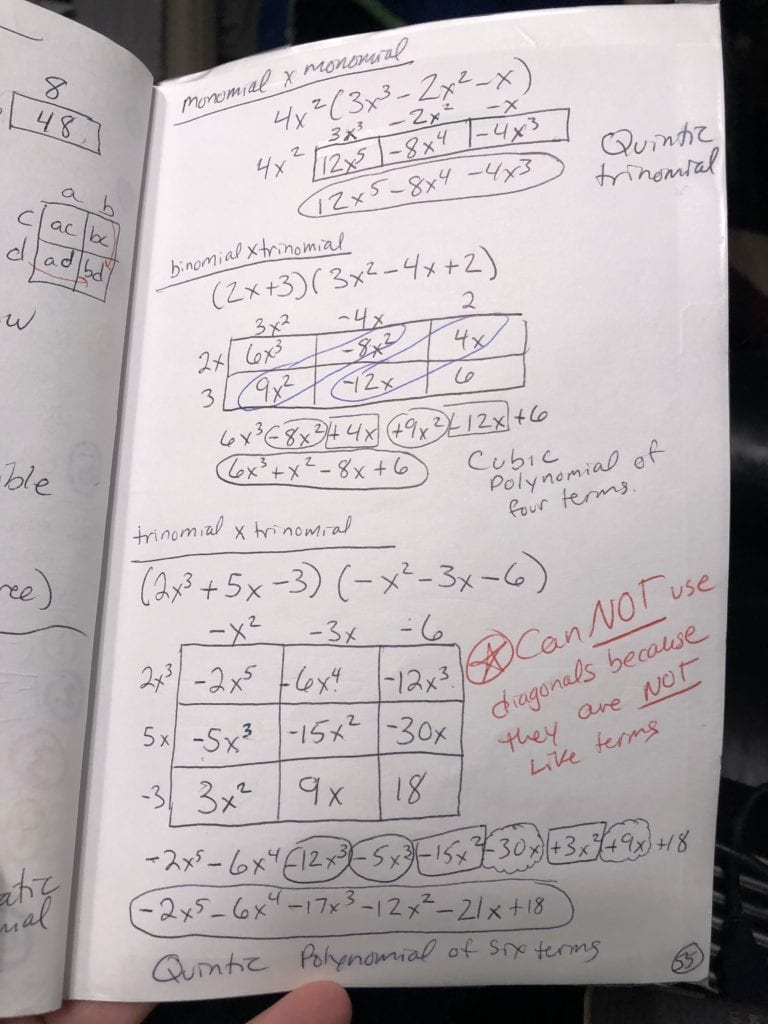 8
48
a b
c ac bc
d ad bd
w
ble
ree)
atic
mial
monomial x monomial
4x²(3x³-2x²-x)
3x³ -2x² -x
4x² 12x⁵ -8x⁴ -4x³
12x⁵-8x⁴-4x³
Quintic
trinomial
binomial x trinomial
(2x+3)(3x²-4x+2)
3x² -4x 2
2x 6x³ -8x² 4x
3 9x² -12x 6
6x³-8x²+4x+9x²-12x+6
6x³+x²-8x+6
Cubic
Polynomial of
four terms.
trinomial x trinomial
(2x³+5x-3)(-x²-3x-6)
-x² -3x -6
2x³ -2x⁵ -6x⁴ -12x³
5x -5x³ -15x² -30x
-3 3x² 9x 18
Can NOT use
diagonals because
they are NOT
Like terms
-2x⁵-6x⁴-12x³-5x³-15x²-30x+3x²+9x+18
-2x⁵-6x⁴-17x³-12x²-21x+18
Quintic Polynomial of six terms
55